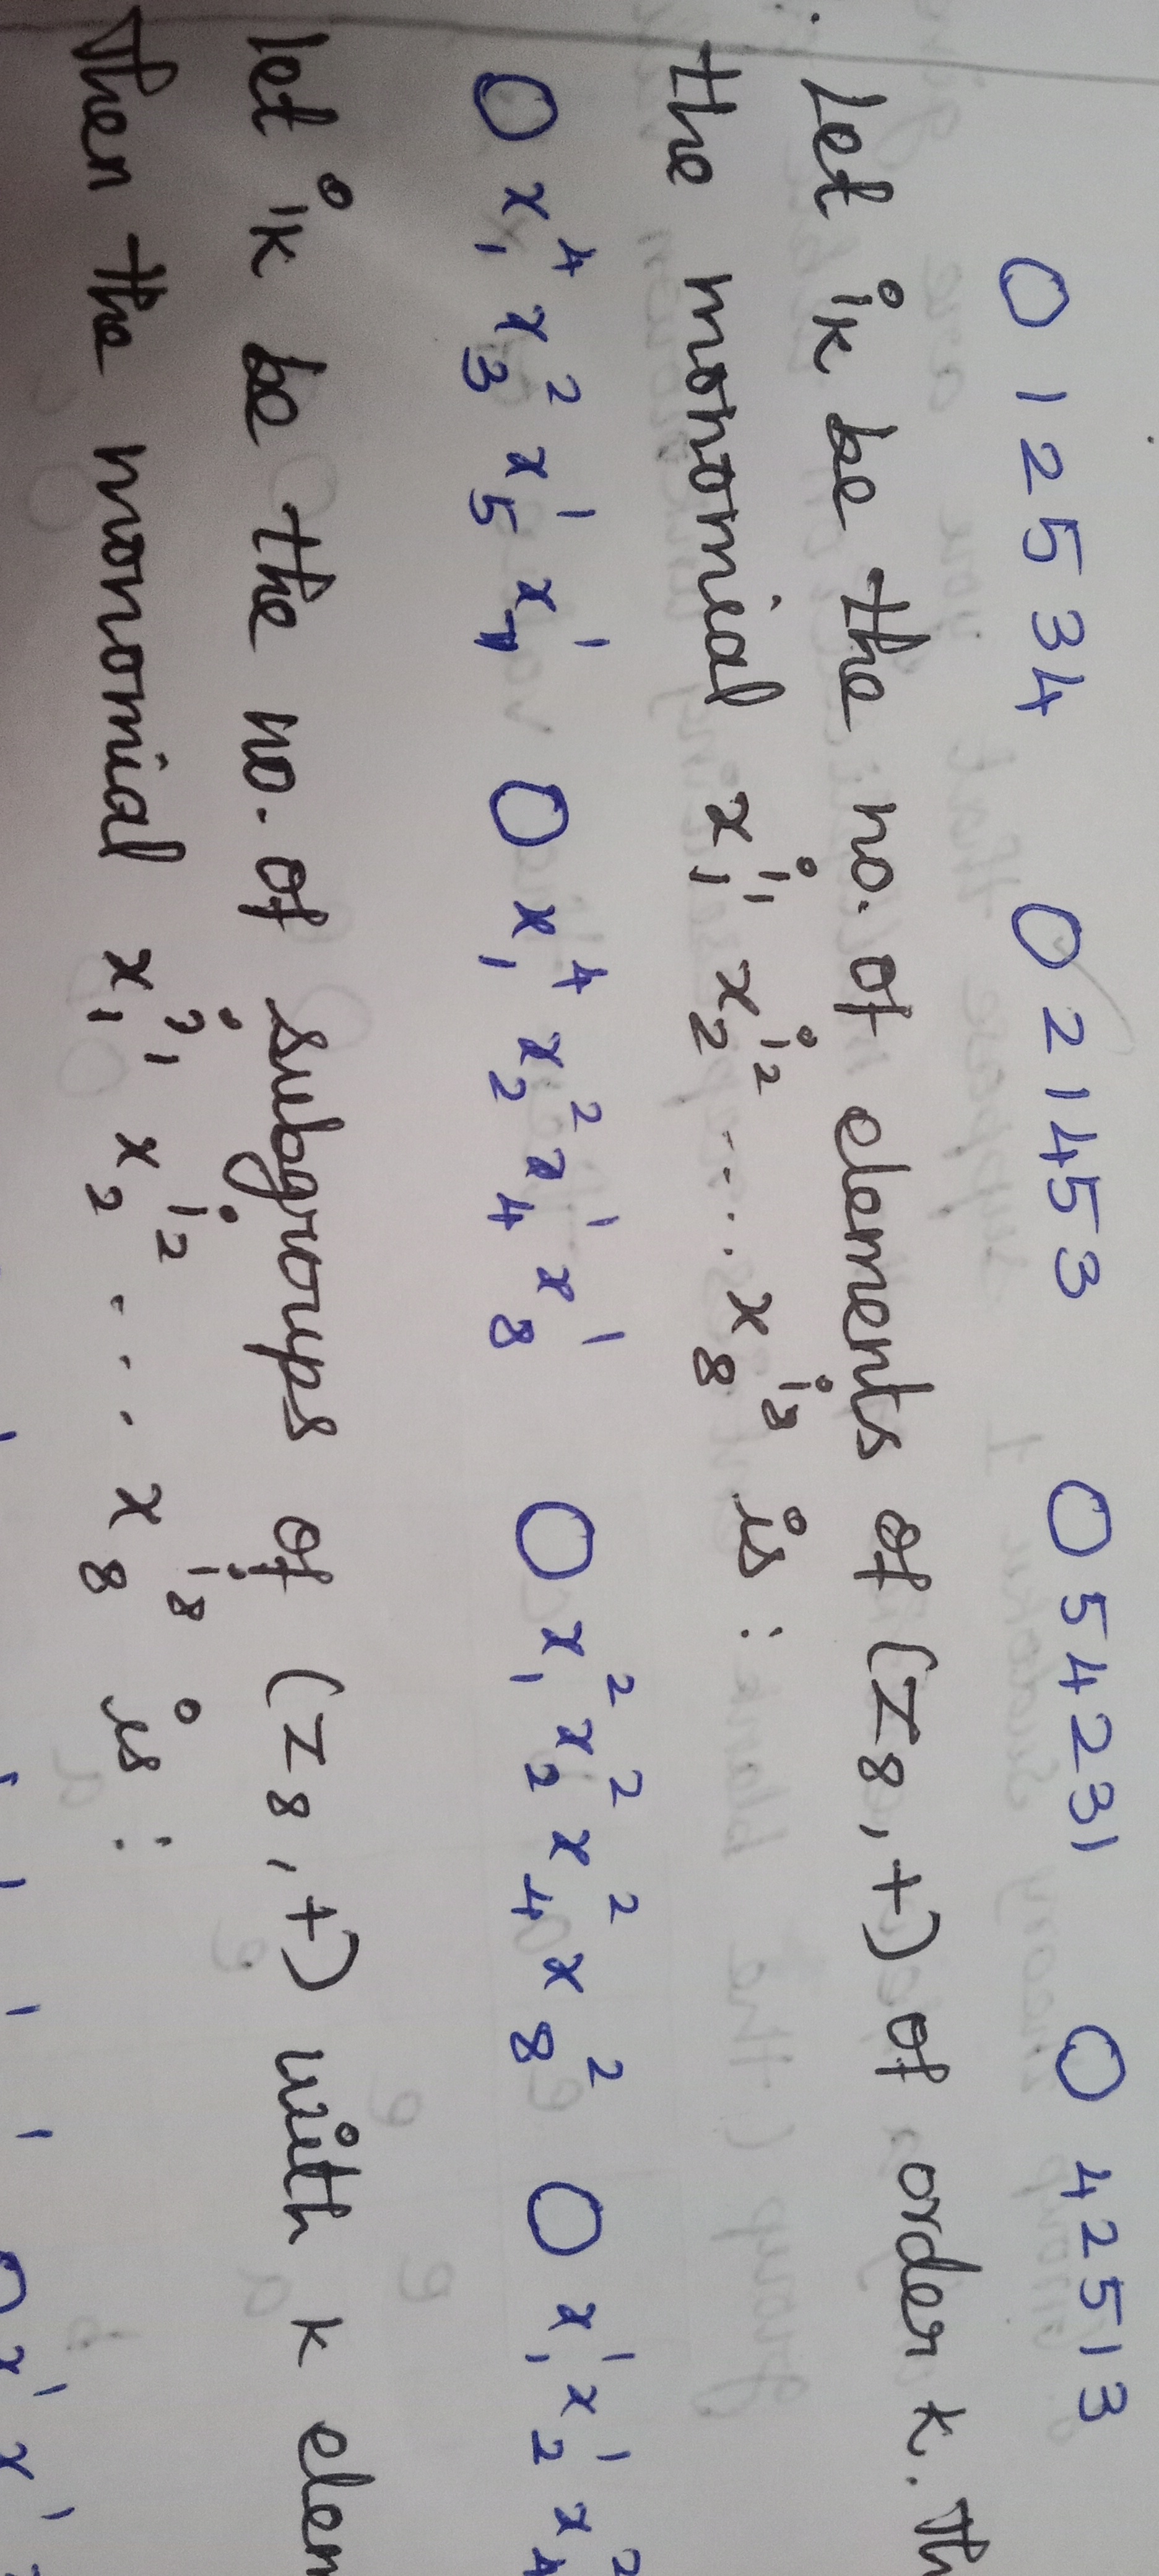 O 12534 O 21453 O 54231 O 42513
Let iₖ be the no. of elements of (Z₈, +) of order k. Th
the monomial x₁^i₁ x₂^i₂ ... x₈^i₈ is :
O x₁⁴ x₃² x₅¹ x₇¹ O x₁⁴ x₂² x₄¹ x₈¹ O x₁² x₂² x₄² x₈² O x₁¹ x₂¹ x₄²
let iₖ be the no. of subgroups of (Z₈, +) with k elem
Then the monomial x₁^i₁ x₂^i₂ ... x₈^i₈ is :